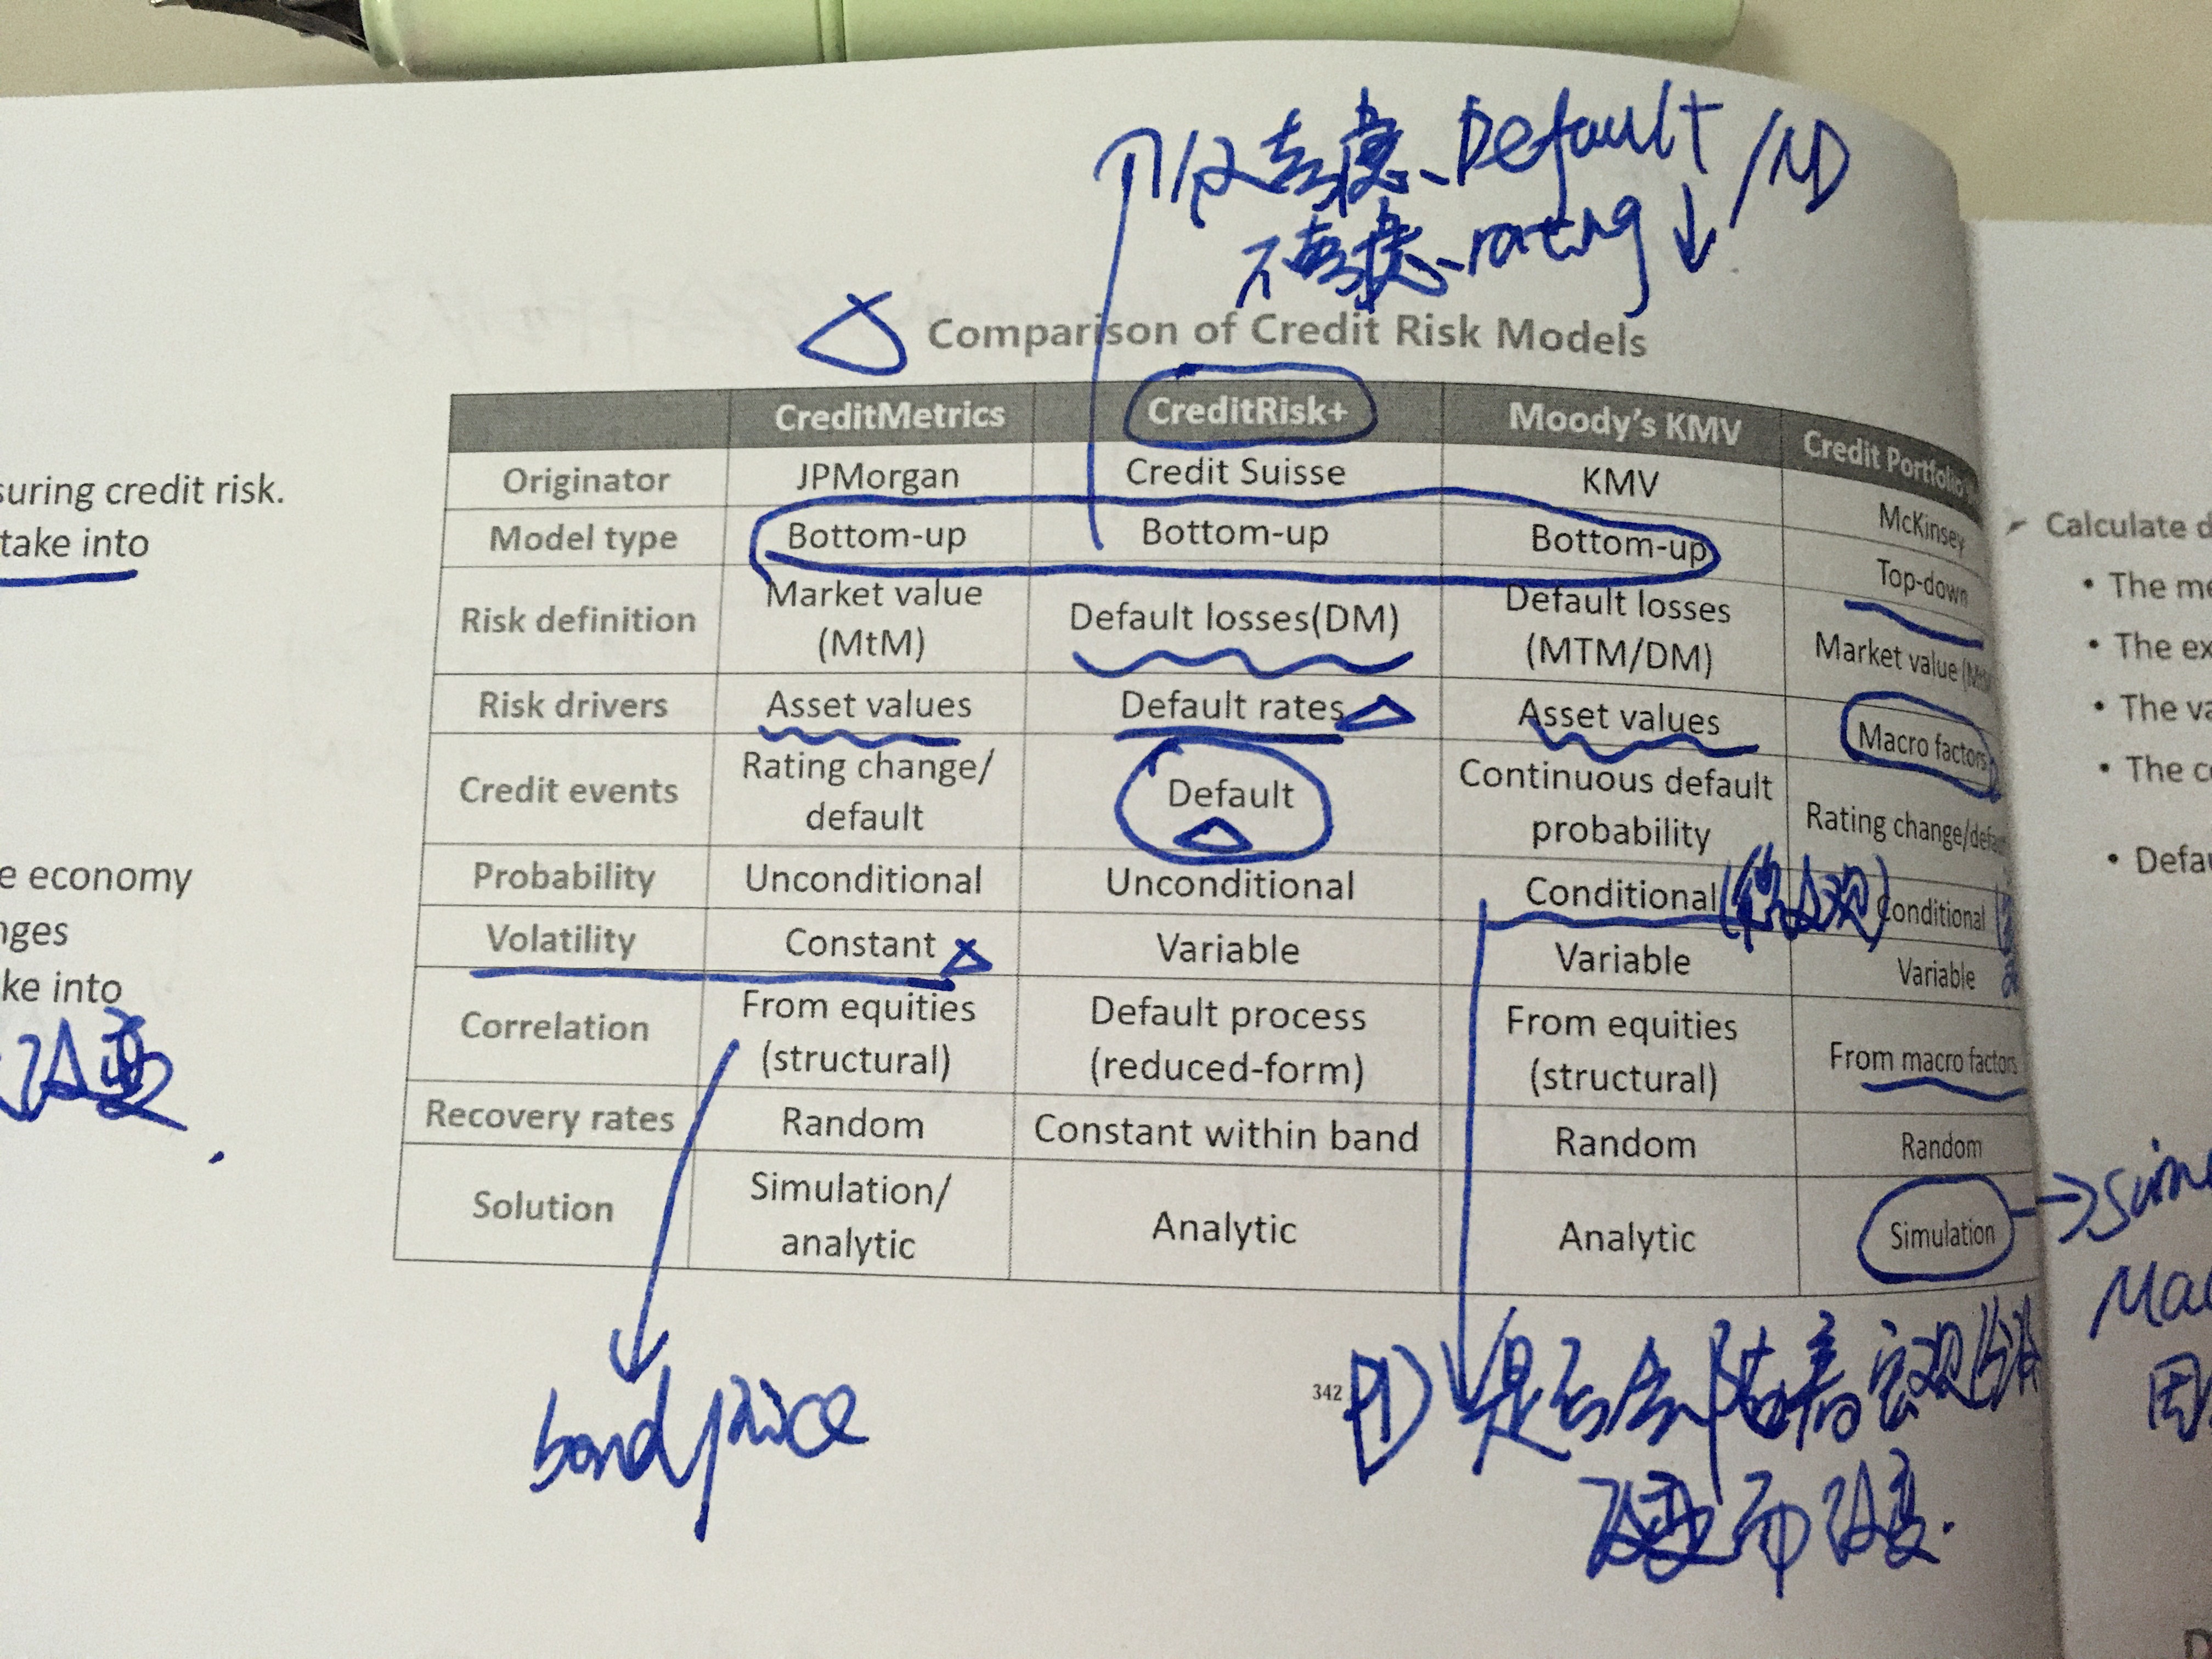 仅考虑 Default /
不考虑 rating ↓
Comparison of Credit Risk Models
CreditMetrics CreditRisk+ Moody's KMV Credit Portfolio
Originator JPMorgan Credit Suisse KMV McKinsey
Model type Bottom-up Bottom-up Bottom-up Top-down
Risk definition Market value (MtM) Default losses(DM) Default losses (MTM/DM) Market value
Risk drivers Asset values Default rates Asset values Macro factors
Credit events Rating change/ default Default Continuous default probability Rating change/
Probability Unconditional Unconditional Conditional Conditional
Volatility Constant Variable Variable Variable
Correlation From equities (structural) Default process (reduced-form) From equities (structural) From macro factors
Recovery rates Random Constant within band Random Random
Solution Simulation/ analytic Analytic Analytic Simulation
bond price
342
PD 是否会随着宏观经济
改变而改变.
suring credit risk.
take into
e economy
nges
ke into
改变
Calculate d
• The me
• The ex
• The va
• The co
• Defau